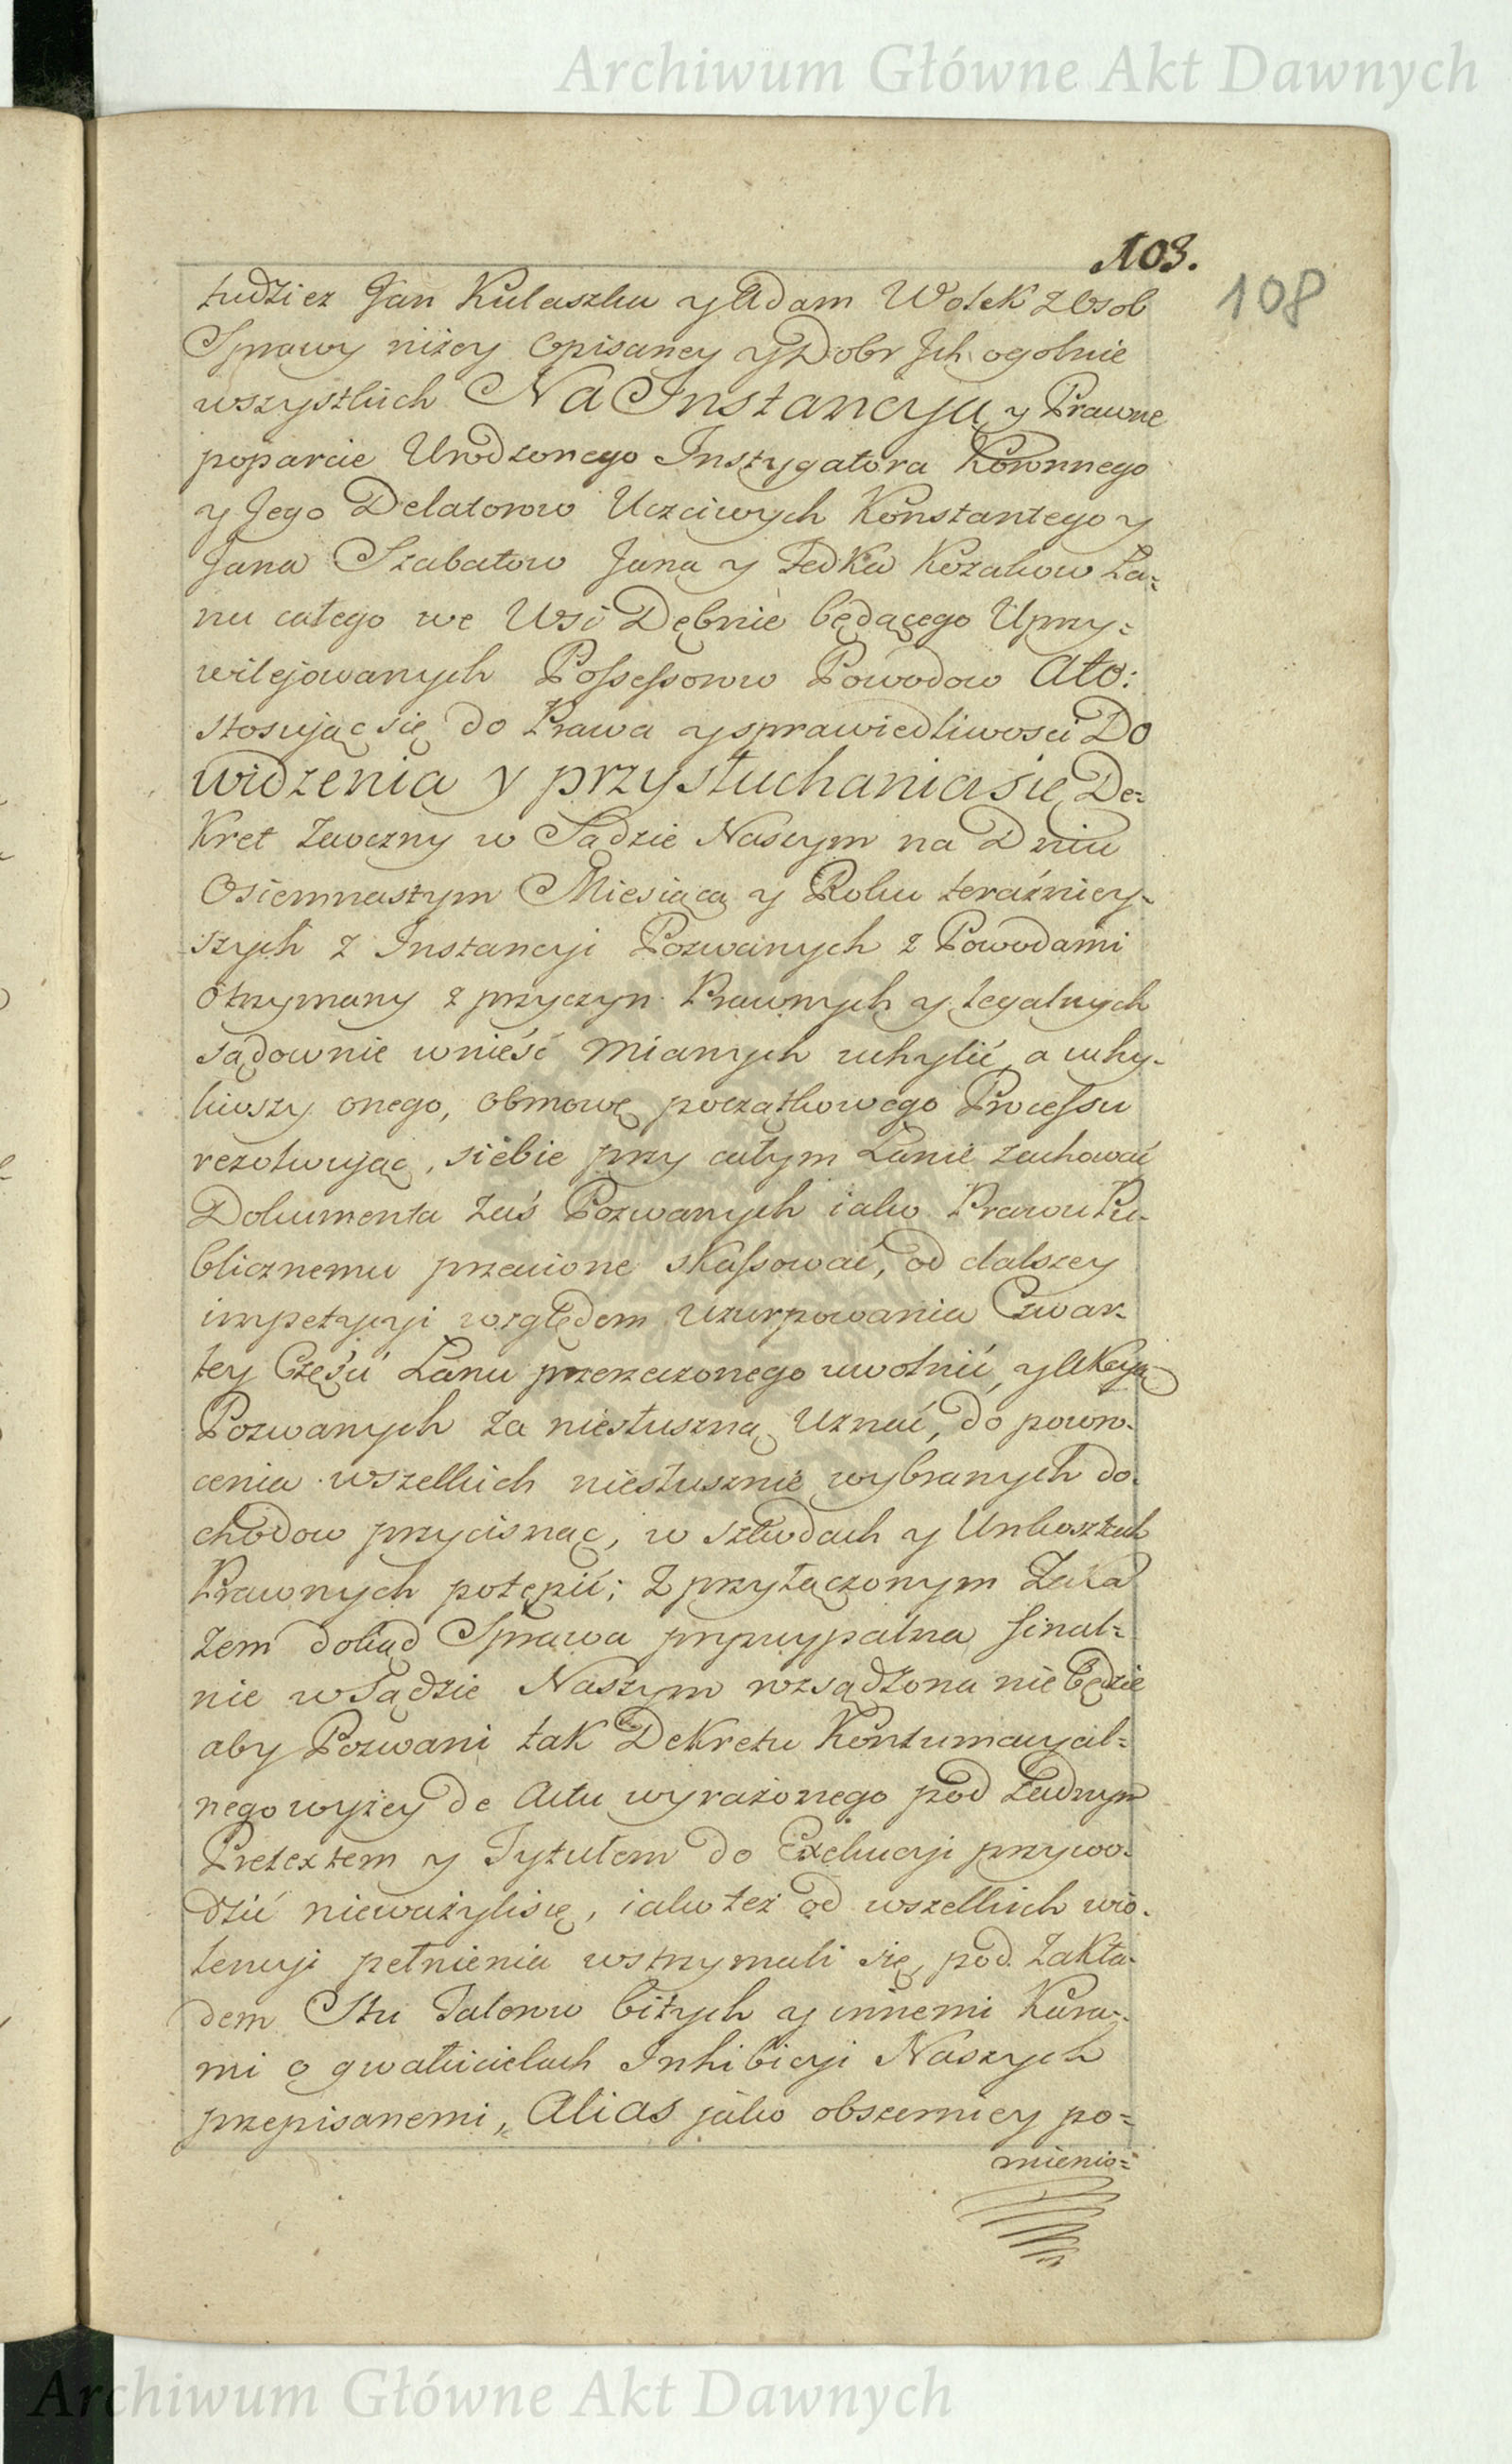 Archiwum Główne Akt Dawnych
103.
108
tudziez Jan Kulaszka y Adam Wołek z Osob
Sprawy niżey Opisaney y Dobr Jch ogolnie
wszystkich Na Instancyą y Prawne
poparcie Urodzonego Instygatora Koronnego
y Jego Delatorow Uczciwych Konstantego y
Jana Szabatow Jana y Fedka Kozakow Ła=
nu całego we Wsi Dębnie będącego Upry=
wilejowanych Possessorow Powodow Ato:
stosując się do Prawa y sprawiedliwosci Do
widzenia y przysłuchania sie De=
kret Zaoczny w Sądzie Naszym na Dniu
Osiemnastym Miesiąca y Roku teraźniey-
szych z Instancyi Pozwanych z Powodami
otrzymany z przyczyn Prawnych y legalnych
sądownie wnieść mianych uchylić, a uchy-
liwszy onego, obmowę początkowego Processu
rezolwując, siebie przy całym Łanie zachować
Dokumenta zaś Pozwanych iako Prawu Pu-
blicznemu przeciwne skassować, od dalszey
impetycyi względem uzurpowania Czwar-
tey Częśći Łanu przerzeczonego uwolnić, y Akcyą
Pozwanych za niesłuszną Uznać, do powro-
cenia wszelkich niesłusznie wybranych do-
chodow przycisnąc, w szkodach y Unkosztach
Prawnych potępić; Z przyłączonym Zaka
zem dokąd Sprawa pryncypalna final=
nie w Sądzie Naszym rozsądzona nie będzie
aby Pozwani tak Dekretu Kontumacyal=
nego wyżey de Actu wyrażonego pod żadnym
Pretextem y Tytułem do Exekucyi przywo-
dzić nieważyli się, iako też od wszelkich wio-
lencyi pełnienia wstrzymali się, pod zakła-
dem Stu Talerow bitych y innemi Kara-
mi o gwałcicielach Inhibicyi Naszych
przepisanemi, Alias jako obszerniey po=
mienio=
Archiwum Główne Akt Dawnych